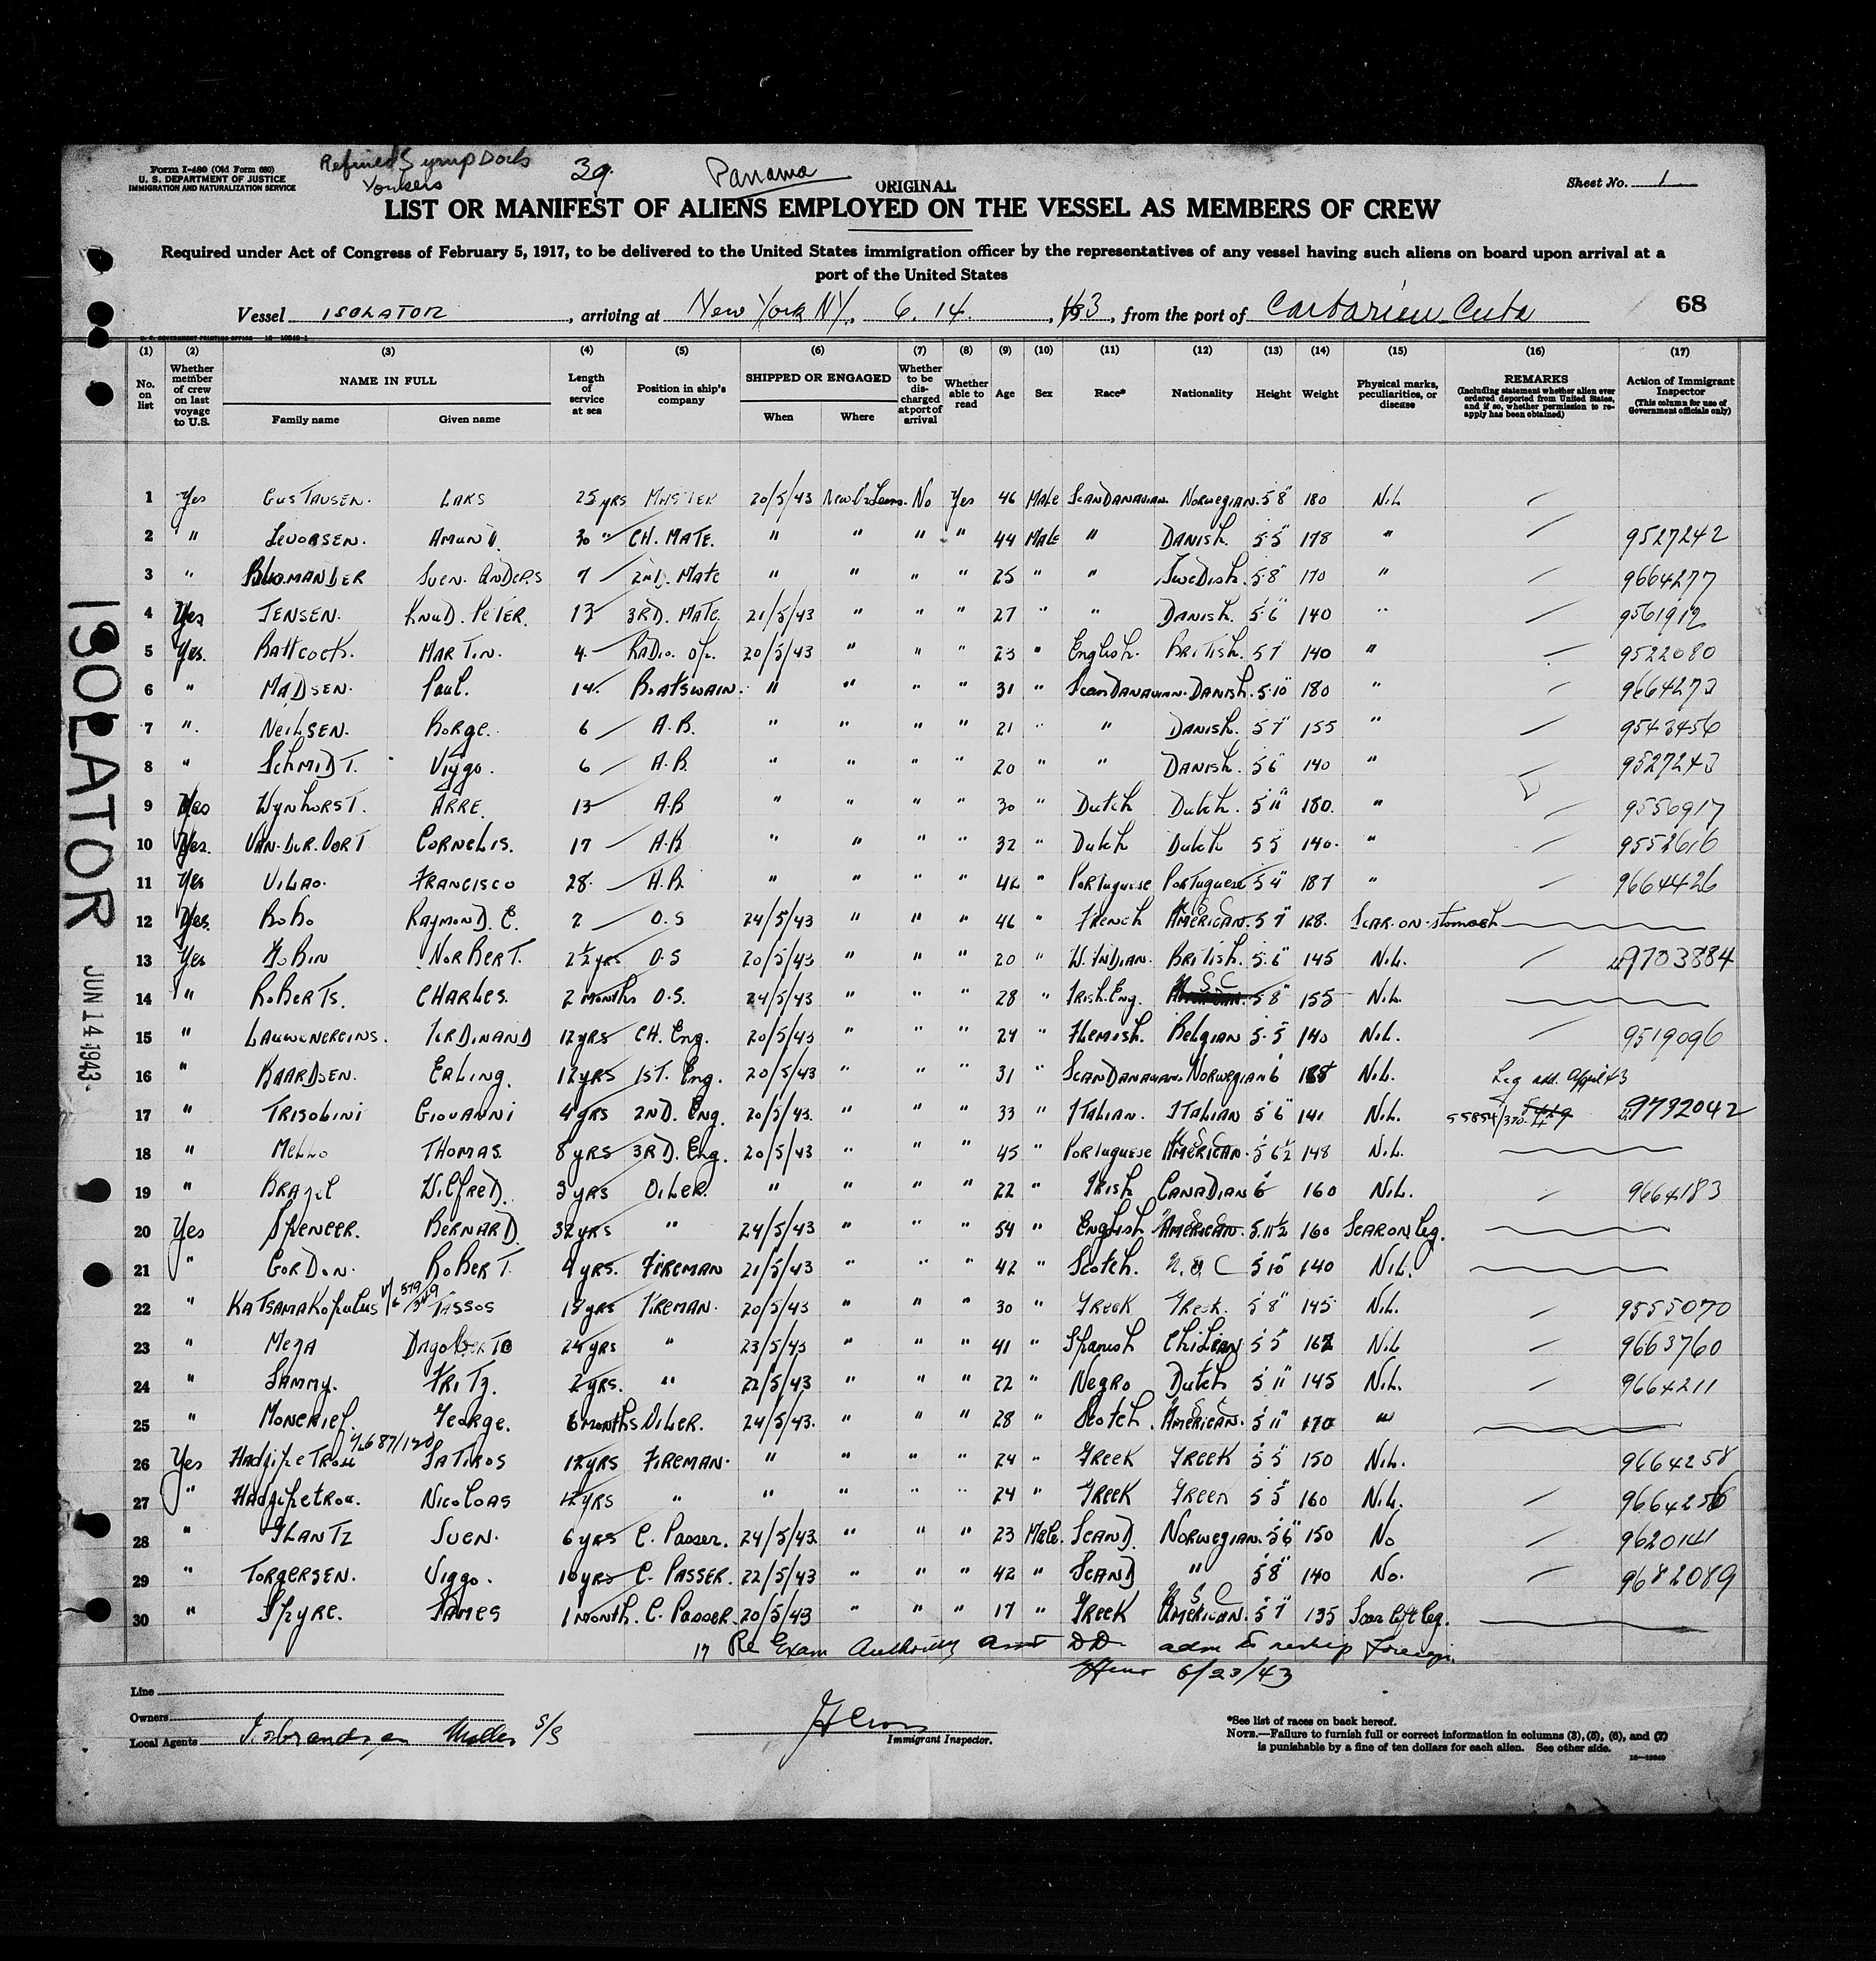 Form I-480 (Old Form 680)
U. S. DEPARTMENT OF JUSTICE
IMMIGRATION AND NATURALIZATION SERVICE
Refined Syrup Docks
Yonkers
39.
Panama
ORIGINAL
Sheet No. 1
LIST OR MANIFEST OF ALIENS EMPLOYED ON THE VESSEL AS MEMBERS OF CREW
Required under Act of Congress of February 5, 1917, to be delivered to the United States immigration officer by the representatives of any vessel having such aliens on board upon arrival at a
port of the United States
Vessel ISOLATOR, arriving at New York NY, 6. 14., 1943, from the port of Caibarien Cuba
68
(1) (2) (3) (4) (5) (6) (7) (8) (9) (10) (11) (12) (13) (14) (15) (16) (17)
No. on list
Whether member of crew on last voyage to U.S.
NAME IN FULL
Family name Given name
Length of service at sea
Position in ship's company
SHIPPED OR ENGAGED
When Where
Whether to be discharged at port of arrival
Whether able to read
Age
Sex
Race*
Nationality
Height
Weight
Physical marks, peculiarities, or disease
REMARKS
(Including statement whether alien ever ordered deported from United States, and if so, whether permission to reapply has been obtained)
Action of Immigrant Inspector
(This column for use of Government officials only)
1 Yes GUSTAUSEN. LARS 25 yrs MASTER 20/5/43 New Orleans. No Yes 46 Male SCANDANAVIAN Norwegian. 5 8" 180 NiL
2 " Levorsen. AMUND. 30 " CH. MATE. " " " " 44 Male " DANISH. 5.5" 178 " 9527242
3 " BLOMANDER SVEN. ANDERS 7 2nd. Mate " " " " 25 " " Swedish. 5.8" 170 " 9664277
4 Yes JENSEN. KNUD. PETER. 13 3RD. MATE. 21/5/43 " " " 27 " " DANISH. 5.6" 140 " 9561912
5 Yes. Battcock. MARTIN. 4 RADIO. Of. 20/5/43 " " " 23 " English. BRITISH. 5 7" 140 " 9522080
6 " MADSEN. Paul. 14. BOATSWAIN. " " " " 31 " SCANDANAVIAN. DANISH. 5.10" 180 " 9664273
7 " NEILSEN. Borge. 6 A.B. " " " " 21 " " DANISH. 5 7" 155 " 9543456
8 " SCHMIDT. Viggo. 6 A.B. " " " " 20 " " DANISH. 5 6" 140 " 9527243
9 Yes WynhorsT. ARRE. 13 A.B " " " " 30 " Dutch Dutch. 5 11" 180. " 9556917
10 Yes. VAN.DER.VORT CORNELIS. 17 A.B " " " " 32 " Dutch Dutch 5 5 140. " 9552616
11 Yes VILAO. FRANCISCO 28. A.B. " " " " 42 " PORTUGUESE PORTUGUESE 5 4" 187 " 9664426
12 Yes. BOBO RAYMOND. E. 2 O.S 24/5/43 " " " 46 " French AMERICAN. U S C 5 7" 128. SCAR.ON.stomach
13 Yes NORBERT. 2½ yrs O.S 20/5/43 " " " 20 " W. INDIAN. BRITISH. 5.6" 145 NiL. 9703884
14 " ROBERTS. CHARLES. 2 MONTHS O.S. 24/5/43 " " " 28 " Irish.Eng. U S C 5 8" 155 NiL.
15 " FERDINAND 12 yrs CH. Eng. 20/5/43 " " " 24 " Flemish. Belgian 5.5" 140 NiL. 9519096
16 " BAARDSEN. ERLING. 12 yrs 1ST. Eng. 20/5/43 " " " 31 " SCANDANAVIAN. Norwegian 6 188 NiL. Leg add. April 43
17 " TRISOLINI GIOVANNI 4 yrs 2ND. Eng. 20/5/43. " " " 33 " ITALIAN. ITALIAN 5 6" 141 NiL. 55854/370. 9732042
18 " MELLO THOMAS. 8 yrs 3RD. Eng. 20/5/43 " " " 45 " Portuguese AMERICAN. U S C 5 6½ 148 NiL.
19 " BRAZIL WILFRED. 3 yrs OILER. " " " " 22 " Irish CANADIAN 6 160 NiL. 9664183
20 Yes SPENCER. BERNARD. 32 yrs " 24/5/43 " " " 54 " English AMERICAN. U S C 5.11½ 160 SCAR ON Leg.
21 " GORDON. ROBERT. 4 yrs. FIREMAN 21/5/43 " " " 42 " Scotch. U. S C 5 10" 140 NiL.
22 " KATSAMAKOPULUS TASSOS 18 yrs FIREMAN. 20/5/43 " " " 30 " Greek Greek. 5 8" 145 NiL. 9555070
23 " MEZA DAGOBERTO 24 yrs " 23/5/43 " " " 41 " Spanish Chilean 5 5" 162 NiL 9663760
24 " SAMMY. FRITZ. 2 yrs. " 22/5/43 " " " 22 " Negro Dutch 5 11" 145 NiL. 9664211
25 " MONCRIEF. George. 6 months OILER. 24/5/43. " " " 28 " Scotch. AMERICAN. U S C 5 11" 170 "
26 Yes HADJIPETROU SATIROS 12 yrs FIREMAN. " " " " 24 " GREEK GREEK 5 5" 150 NiL. 9664258
27 " HADJIPETROU. NICOLOAS 12 yrs " " " " " 24 " GREEK GREEK 5 5" 160 NiL. 9664256
28 " GLANTZ SVEN. 6 yrs C. Passer. 24/5/43 " " " 23 Male. SCAND. Norwegian. 5 6" 150 No 9620141
29 " TORGERSEN. Viggo. 10 yrs C. PASSER. 22/5/43 " " " 42 " SCAND " 5 8" 140 No. 9682089
30 " SPYRE. JAMES 1 month. C. Passer. 20/5/43 " " " 17 " GREEK AMERICAN. U S C 5 7" 135 Scar left leg.
17 Re Exam Authority asst DD adm to reship foreign.
6/23/43
ISOLATOR JUN 14 1943
Line
Owners
Local Agents Isbrandtsen Moller S/S
Immigrant Inspector.
*See list of races on back hereof.
NOTE.—Failure to furnish full or correct information in columns (3), (5), (6), and (7)
is punishable by a fine of ten dollars for each alien. See other side.